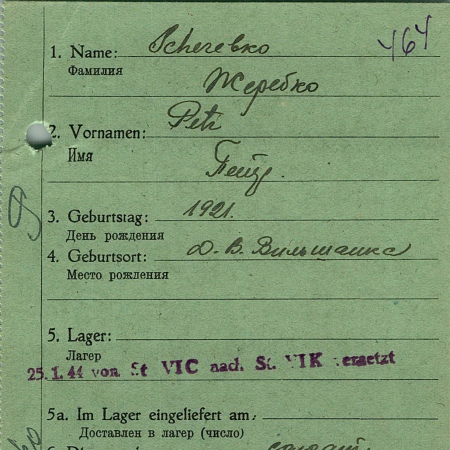 464
1. Name: Scherebko
Фамилия
Жеребко
2. Vornamen: Petr
Имя
Петр.
3. Geburtstag: 1921.
День рождения
4. Geburtsort: д. В. Вильшанка
Место рождения
5. Lager:
Лагер
25.1.44 von St VIC nach St. VIK versetzt
5a. Im Lager eingeliefert am:
Доставлен в лагер (число)